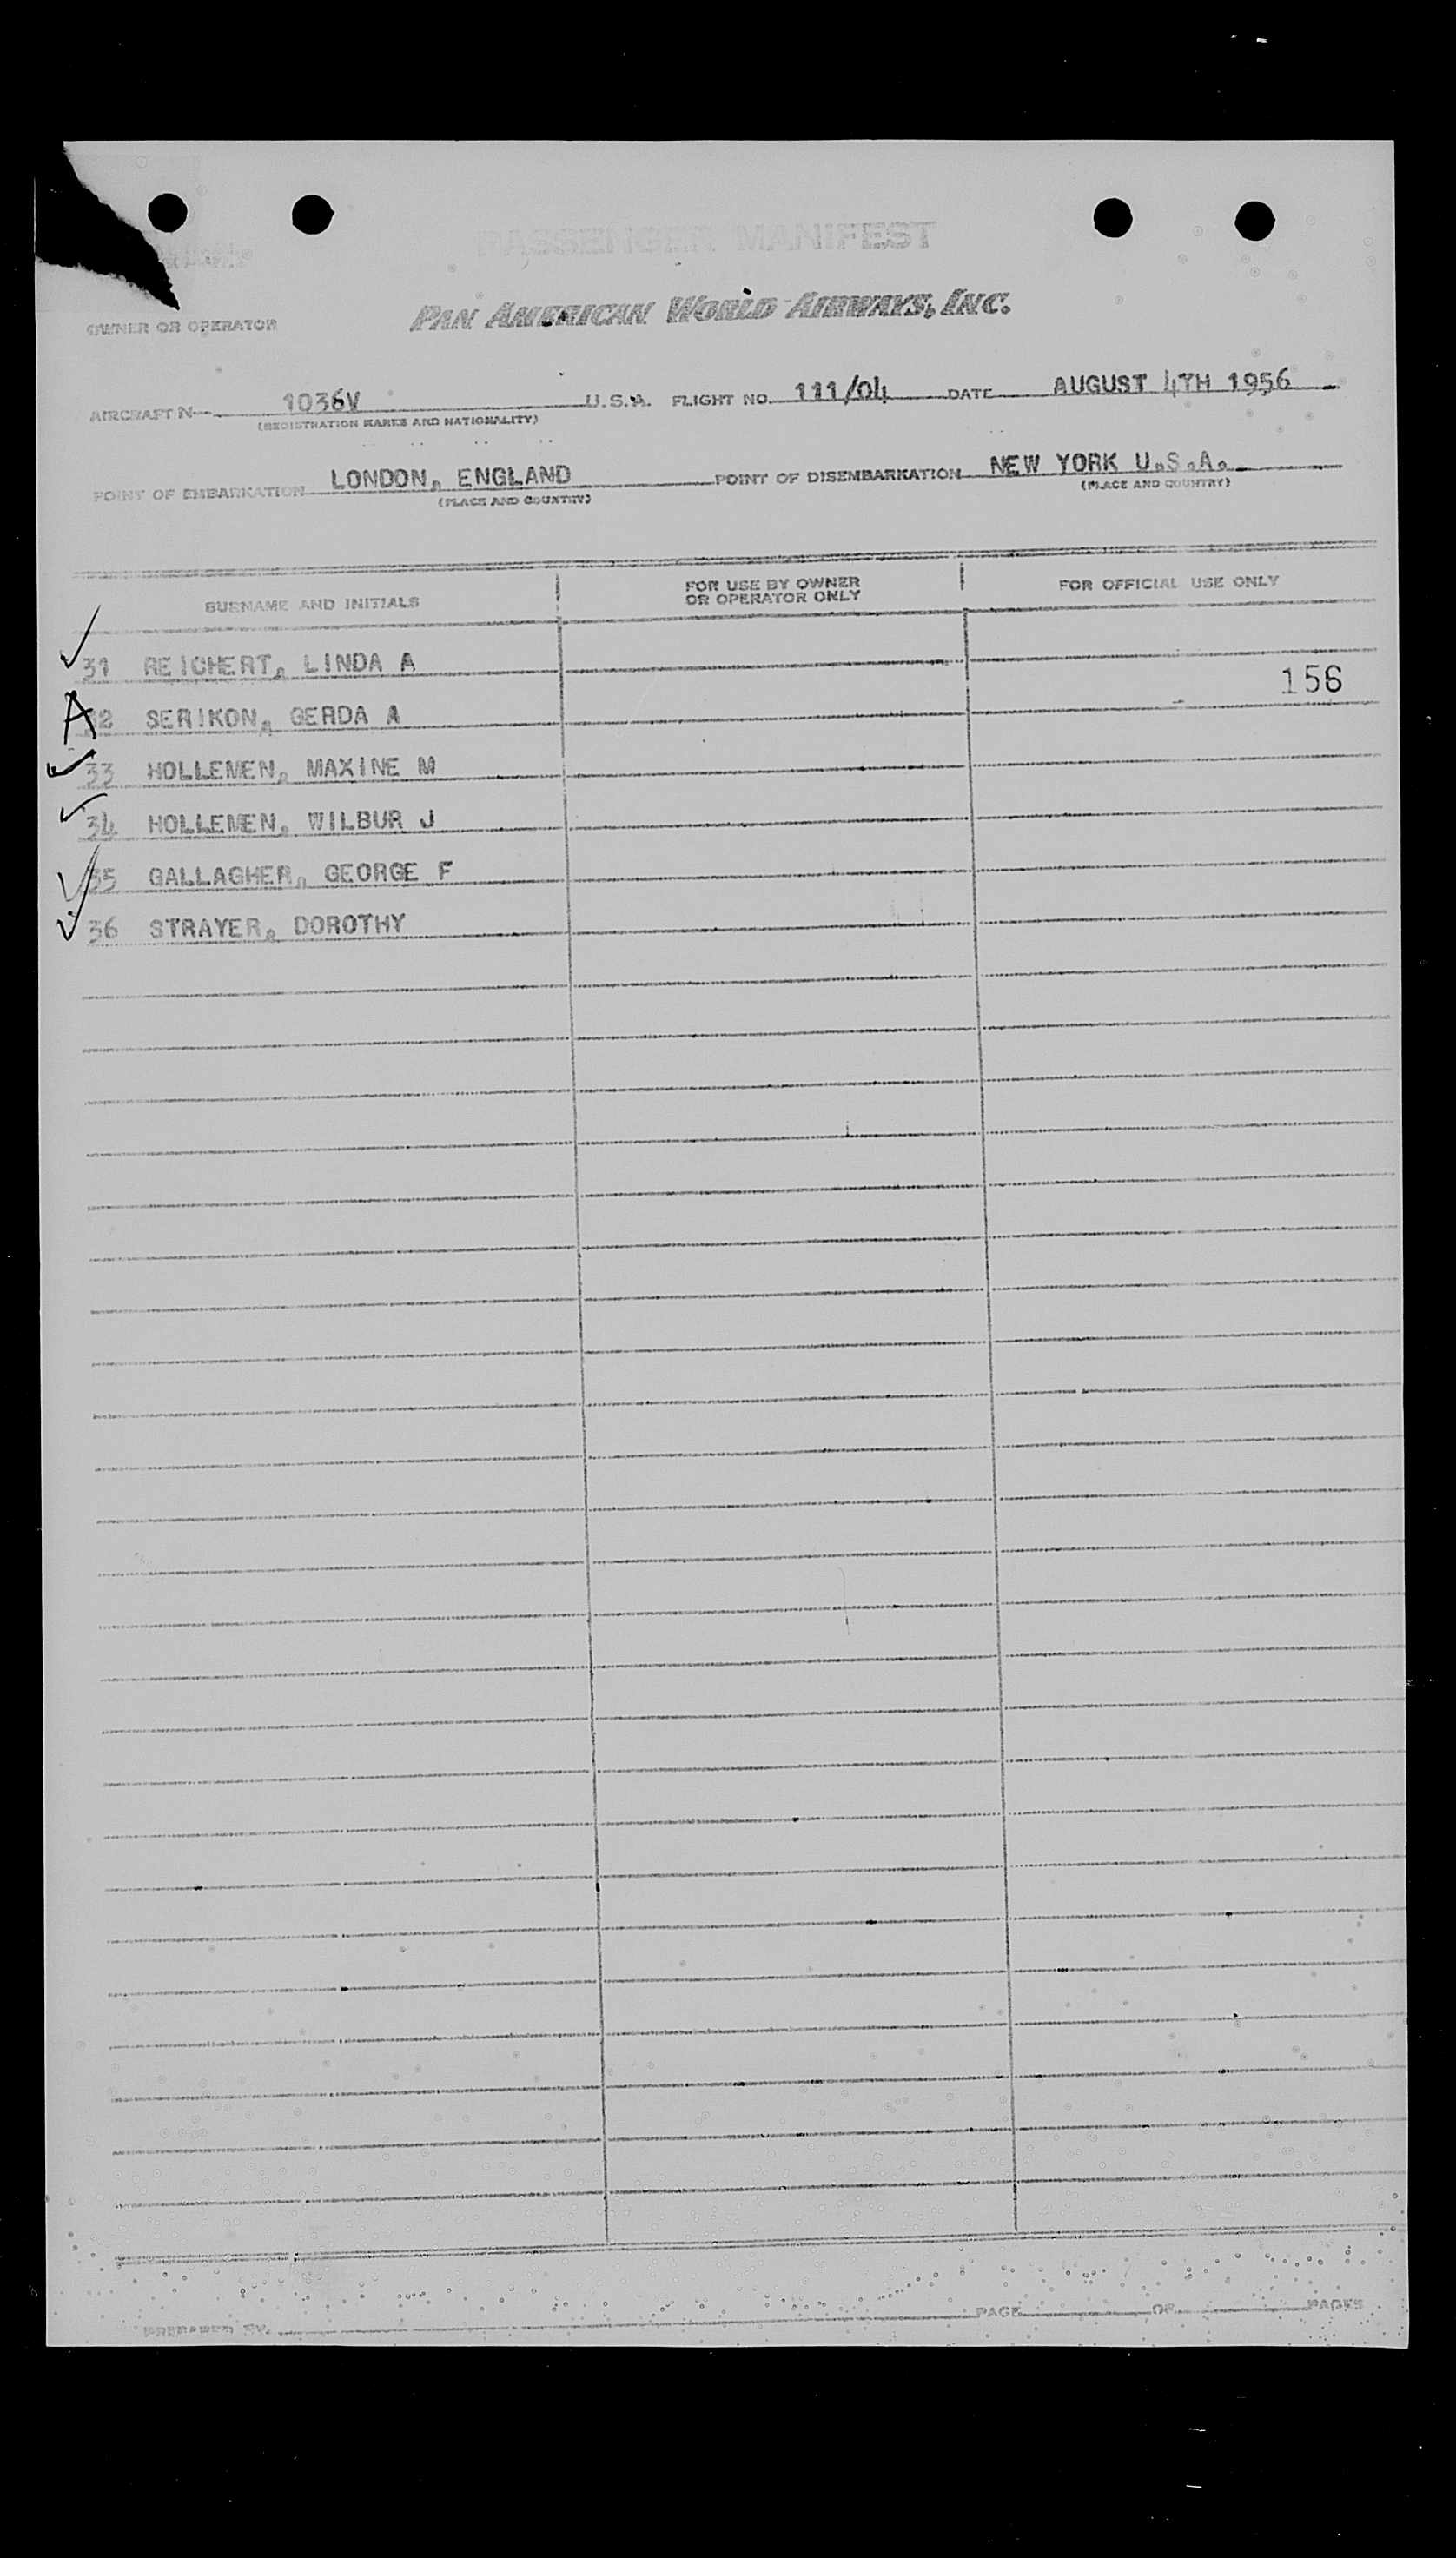 PASSENGER MANIFEST
OWNER OR OPERATOR PAN AMERICAN WORLD AIRWAYS, INC.
AIRCRAFT N 1036V U.S.A. FLIGHT NO. 111/04 DATE AUGUST 4TH 1956
(REGISTRATION MARKS AND NATIONALITY)
POINT OF EMBARKATION LONDON, ENGLAND POINT OF DISEMBARKATION NEW YORK U.S.A.
(PLACE AND COUNTRY) (PLACE AND COUNTRY)
SURNAME AND INITIALS FOR USE BY OWNER OR OPERATOR ONLY FOR OFFICIAL USE ONLY
31 REICHERT, LINDA A
156
A 32 SERIKON, GERDA A
33 HOLLEMEN, MAXINE M
34 HOLLEMEN, WILBUR J
35 GALLAGHER, GEORGE F
36 STRAYER, DOROTHY
PREPARED BY. PAGE OF PAGES